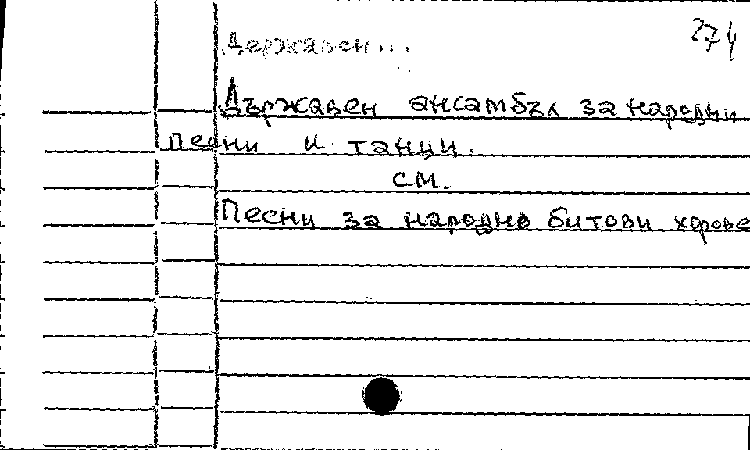 274
Държавен...
Държавен ансамбъл за народни
песни и танци.
см.
Песни за народно битови хорове